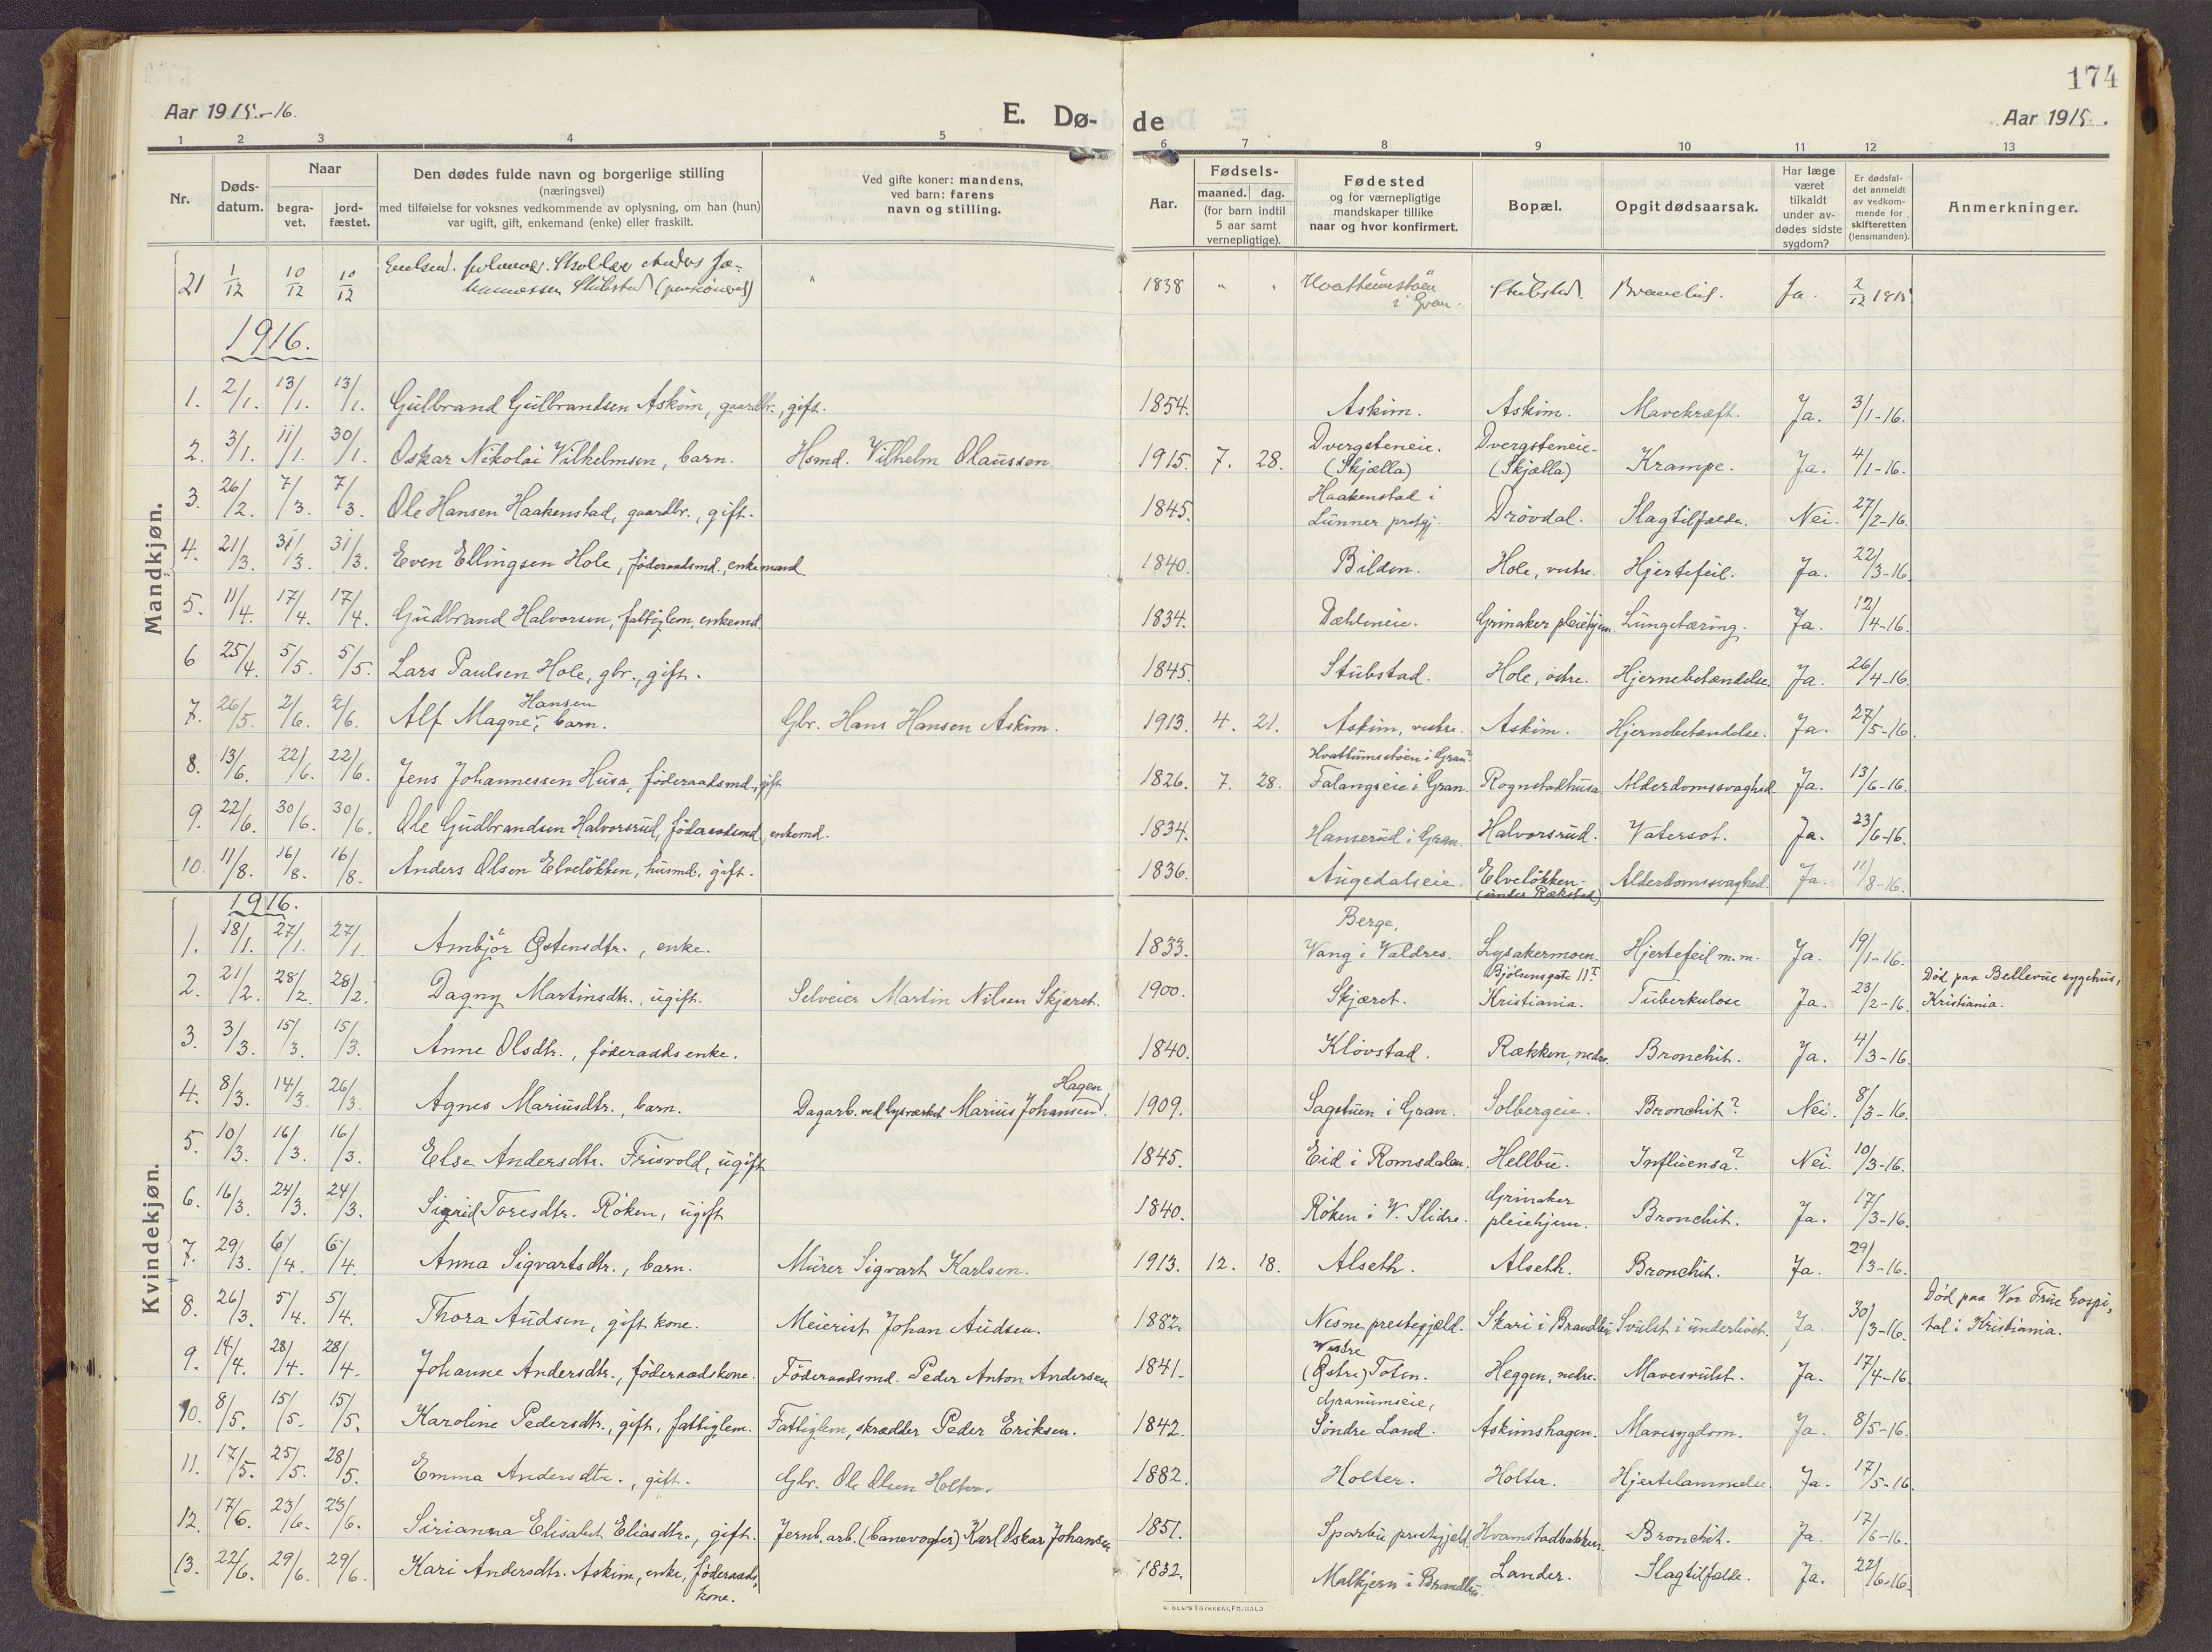 174
Aar 1915-16.
E. Dø-
de
Aar 1915.
1 2 3 4 5 6 7 8 9 10 11 12 13
Nr.
Døds-
datum.
Naar
begra-
vet.
jord-
fæstet.
Den dødes fulde navn og borgerlige stilling
(næringsvei)
med tilføielse for voksnes vedkommende av oplysning, om han (hun)
var ugift, gift, enkemand (enke) eller fraskilt.
Ved gifte koner: mandens,
ved barn: farens
navn og stilling.
Aar.
Fødsels-
maaned. dag.
(for barn indtil
5 aar samt
vernepligtige).
Fødested
og for værnepligtige
mandskaper tillike
naar og hvor konfirmert.
Bopæl.
Opgit dødsaarsak.
Har læge
været
tilkaldt
under av-
dødes sidste
sygdom?
Er dødsfal-
det anmeldt
av vedkom-
mende for
skifteretten
(lensmanden).
Anmerkninger.
Mandkjøn.
21 1/12 10/12 10/12 Anders Jo- Stubstad " 1838 " " i Gran. Stubstad. Ja. 2/12 1915
1916.
1. 2/1. 13/1. 13/1. Gulbrand Gulbrandsen Askim, gaardbr., gift. 1854. Askim. Askim. Mavekræft. Ja. 3/1-16.
2. 3/1. 11/1. 30/1. Oskar Nikolai Vilhelmsen, barn. Hsmd. Vilhelm Olaussen. 1915. 7. 28. Dvergsteneie. (Skjælla) Dvergsteneie- (Skjælla) Krampe. Ja. 4/1-16.
3. 26/2. 7/3. 7/3. Ole Hansen Haakenstad, gaardbr., gift. 1845. Haakenstad i Lunner prstgj. Drövdal. Slagtilfælde. Nei. 27/2-16.
4. 21/3. 31/3. 31/3. Even Ellingsen Hole, föderaadsmd., enkemand. 1840. Bilden. Hole, vestre. Hjertefeil. Ja. 22/3-16.
5. 11/4. 17/4. 17/4. Gudbrand Halvorsen, fattiglem, enkemd. 1834. Dæhleneie. Grinaker pleiehjem. Lungetæring. Ja. 12/4-16.
6 25/4. 5/5. 5/5. Lars Paulsen Hole, gbr., gift. 1845. Stubstad. Hole, östre. Hjernebetændelse. Ja. 26/4-16.
7. 26/5. 2/6. 2/6. Alf Magne Hansen, barn. Gbr. Hans Hansen Askim. 1913. 4. 21. Askim, vestre. Askim. Hjernebetændelse. Ja. 27/5-16.
8. 13/6. 22/6. 22/6. Jens Johannessen Husa, föderaadsmd., gift 1826. 7. 28. Hvattumstöen i Gran? Falangseie i Gran. Rognstadhusa Alderdomssvaghed. Ja. 13/6-16.
9. 22/6. 30/6. 30/6. Ole Gudbrandsen Halvorsrud, föderaadsmd, enkemd. 1834. Hanserud i Gran. Halvorsrud. Vatersot. Ja. 23/6-16.
10. 11/8. 16/8. 16/8. Anders Olsen Elvelökken, husmd., gift. 1836. Augedalseie. Elvelökken- (under Rækstad) Alderdomssvaghed. Ja. 11/8-16.
Kvindekjøn.
1916.
1. 18/1. 27/1. 27/1. Ambjör Østensdtr., enke. 1833. Berge, Vang i Valdres. Lysakermoen. Hjertefeil m.m. Ja. 19/1-16.
2. 21/2. 28/2. 28/2. Dagny Martinsdtr., ugift. Selveier Martin Nilsen Skjæret. 1900. Skjæret. Bjölsensgate 11 I Kristiania. Tuberkulose Ja. 23/2-16. Död paa Bellevue sygehus, Kristiania.
3. 3/3. 15/3. 15/3. Anne Olsdtr., föderaadsenke. 1840. Klövstad. Rækken, nedre. Bronchit. Ja. 4/3-16.
4. 8/3. 14/3. 26/3. Agnes Mariusdtr., barn. Dagarb. ved lysværket Marius Johansen Hagen. 1909. Sagstuen i Gran. Solbergeie. Bronchit? Nei. 8/3-16.
5. 10/3. 16/3. 16/3. Else Andersdtr. Frisvold, ugift 1845. Eid i Romsdalen. Hellbu. Influensa? Nei. 10/3-16.
6. 16/3. 24/3. 24/3. Sigrid Toresdtr. Röken, ugift 1840. Röken i V. Slidre. Grinaker pleiehjem. Bronchit. Ja. 17/3-16.
7. 29/3. 6/4. 6/4. Anna Sigvartsdtr., barn. Murer Sigvart Karlsen. 1913. 12. 18. Alseth. Alseth. Bronchit. Ja. 29/3-16.
8. 26/3. 5/4. 5/4. Thora Audsen, gift kone. Meierist Johan Audsen. 1882. Nesne prestegjeld. Skari i Brandbu Svulst i underlivet. Ja. 30/3-16. Död paa Vor Frue hospi- tal i Kristiania.
9. 14/4. 28/4. 28/4. Johanne Andersdtr., föderaadskone. Föderaadsmd. Peder Anton Andersen 1841. Vestre (Østre) Toten. Heggen, nedre. Mavesvulst. Ja. 17/4-16.
10. 8/5. 15/5. 15/5. Karoline Pedersdtr., gift, fattiglem. Fattiglem, skrædder Peder Eriksen. 1842. Granumseie, Söndre Land. Askimshagen. Mavesygdom. Ja. 8/5-16.
11. 17/5. 25/5. 28/5. Emma Andersdtr., gift. Gbr. Ole Olsen Holter. 1882. Holter. Holter. Hjertelammelse. Ja. 17/5-16
12. 17/6. 23/6. 23/6. Sirianna Elisabet Eliasdtr., gift. Jernb.arb. (banevogter) Karl Oskar Johansen 1851. Sparbu prestegjeld. Hvamstadbakken. Bronchit. Ja. 17/6-16.
13. 22/6. 29/6. 29/6. Kari Andersdtr. Askim, enke, föderaads- kone. 1832. Malkjern i Brandbu. Lander. Slagtilfælde. Ja. 22/6-16.